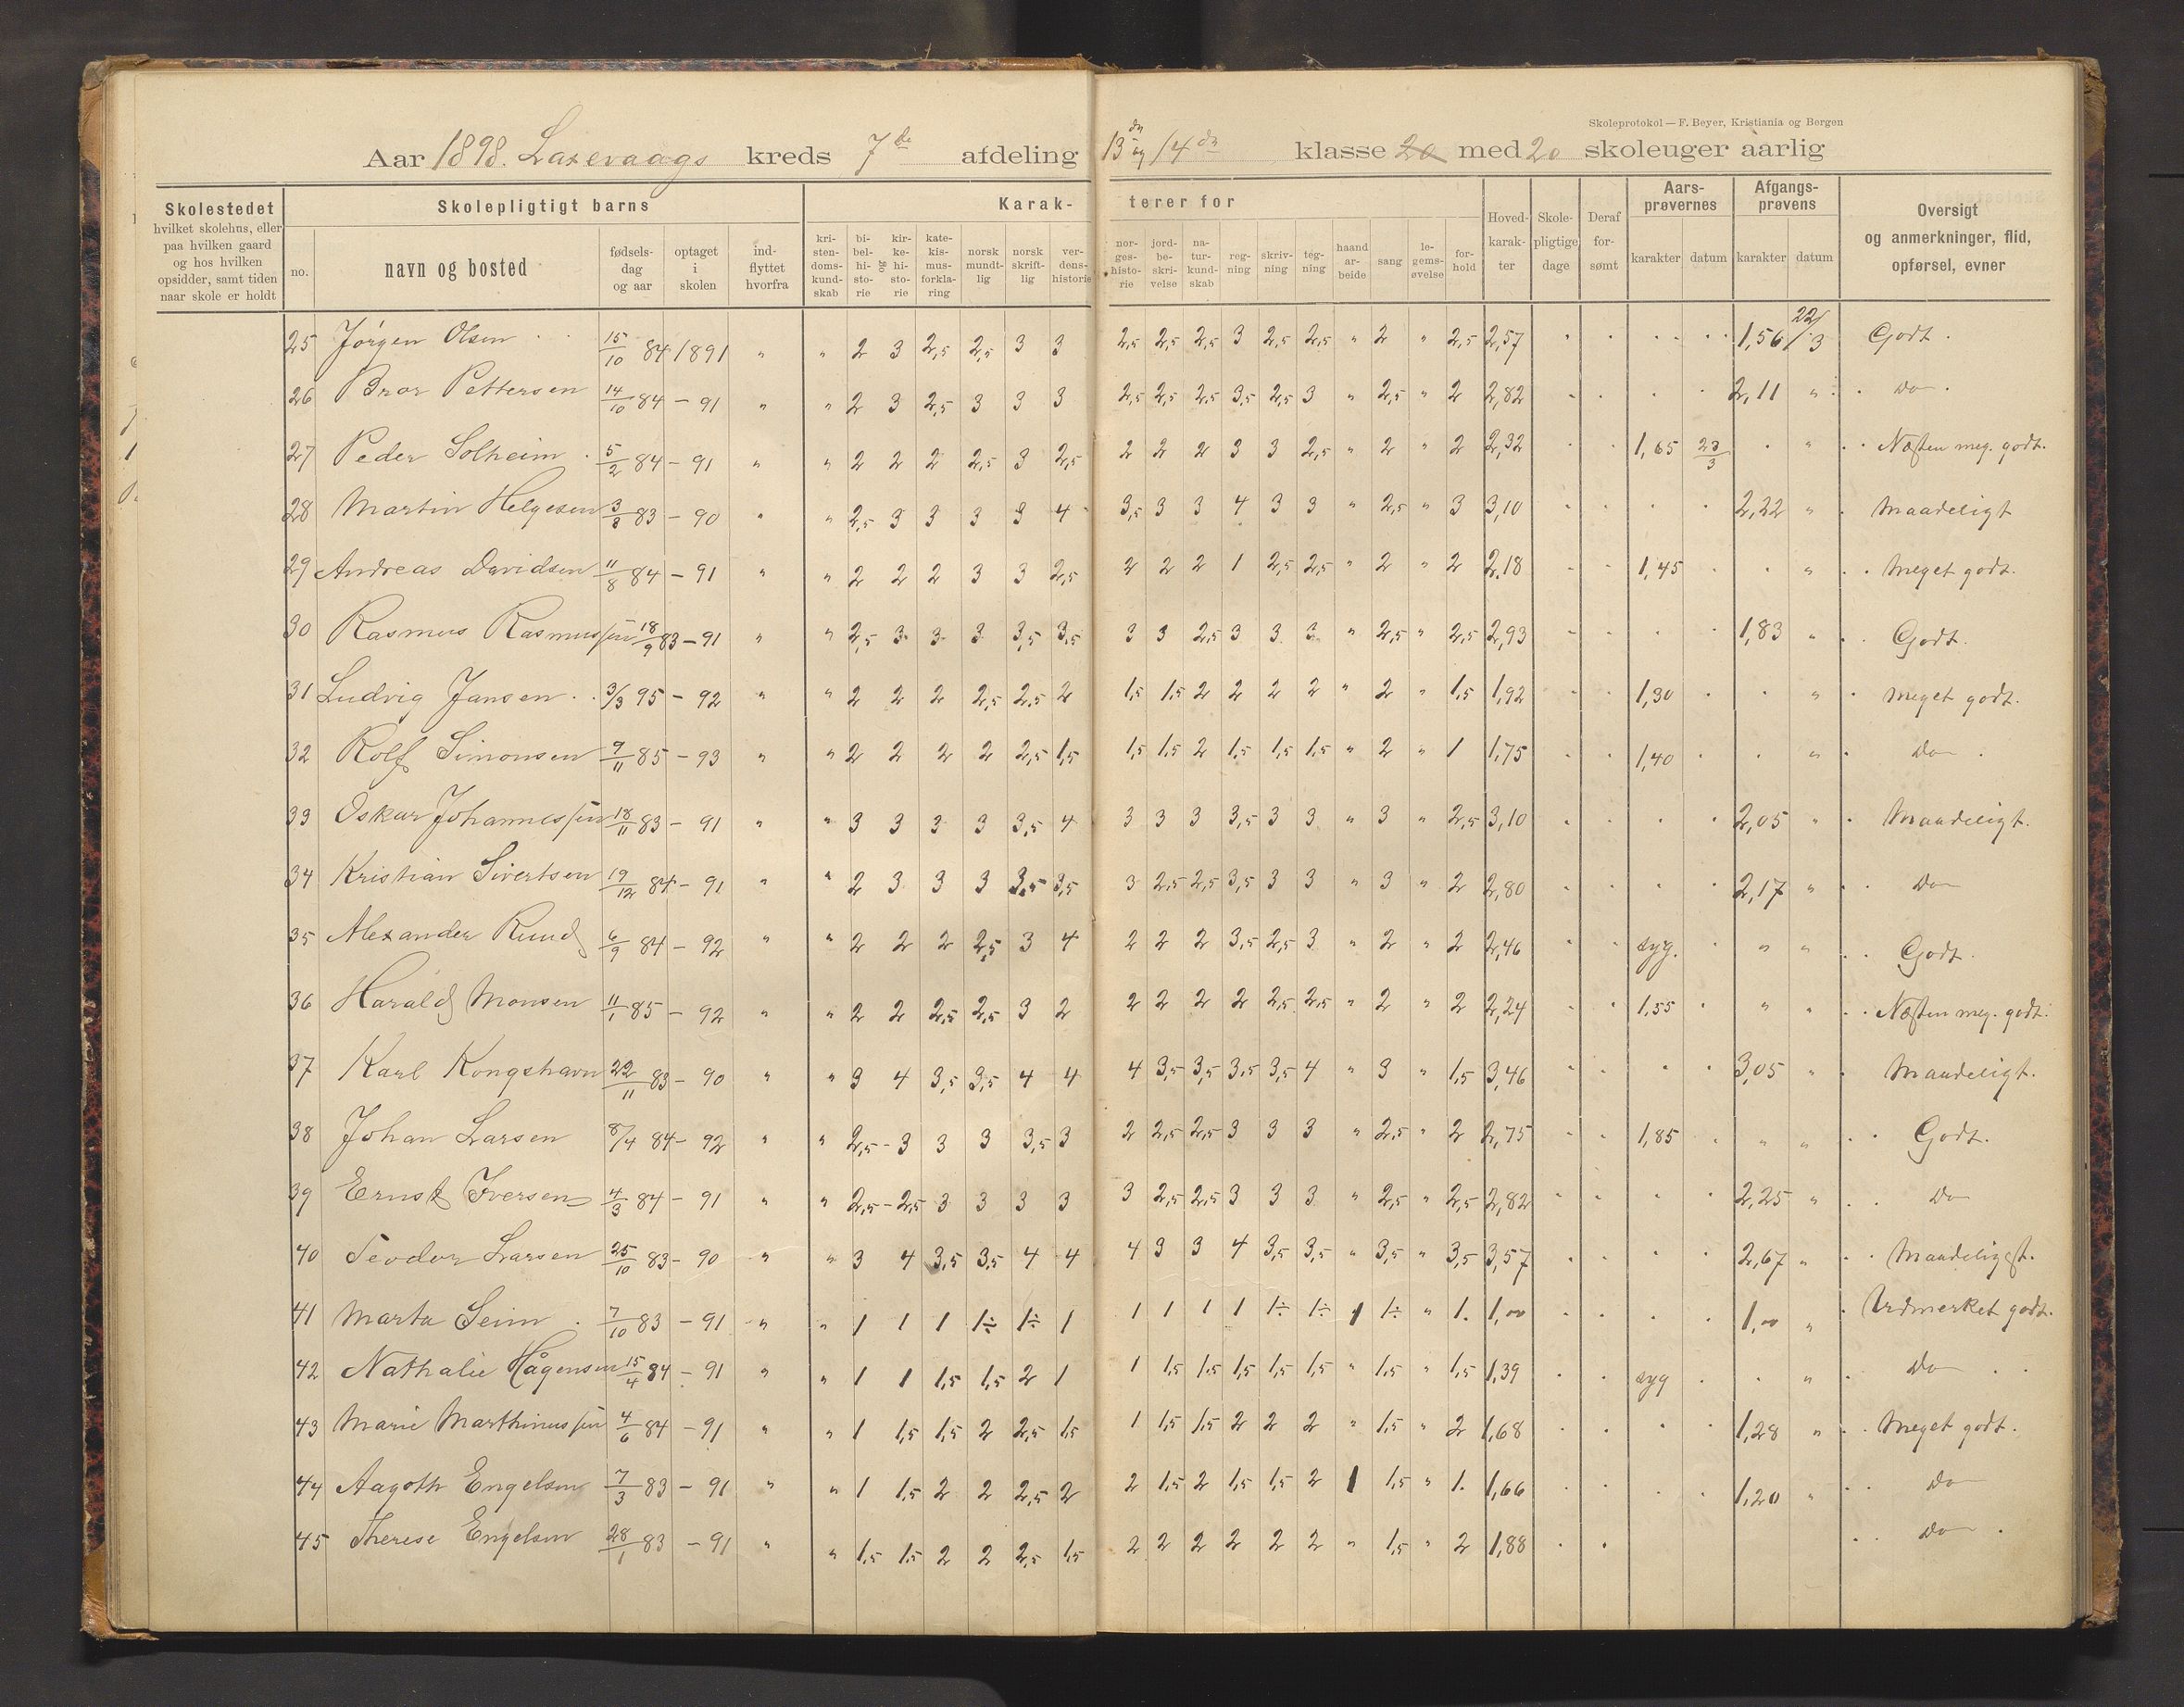 Skoleprotokol — F. Beyer, Kristiania og Bergen
Aar 1898. Laxevaags kreds 7de afdeling 13de og 14de klasse 20 med 20 skoleuger aarlig
Skolestedet hvilket skolehus, eller paa hvilken gaard og hos hvilken opsidder, samt tiden naar skole er holdt
Skolepligtigt barns
Karakterer for
no. navn og bosted fødselsdag og aar optaget i skolen indflyttet hvorfra kristendomskundskab bibelhistorie og kirkehistorie katekismusforklaring norsk mundtlig norsk skriftlig verdenshistorie norgeshistorie jordbeskrivelse naturkundskab regning skrivning tegning haandarbeide sang legemsøvelse forhold Hovedkarakter Skolepligtige dage Deraf forsømt Aarsprøvernes karakter datum Afgangsprøvens karakter datum Oversigt og anmerkninger, flid, opførsel, evner
25 Jørgen Olsen 15/10 84 1891 " " 2 3 2,5 2,5 3 3 2,5 2,5 2,5 3 2,5 2,5 " 2 " 2,5 2,57 1,56 22/3 Godt.
26 Bror Pettersen 14/10 84 – 91 " " 2 3 2,5 3 3 3 2,5 2,5 2,5 3,5 2,5 3 " 2,5 " 2 2,82 2,11 " Do.
27 Peder Solheim 5/2 84 – 91 " " 2 2 2 2,5 3 2,5 2 2 2 3 3 2,5 " 2 " 2 2,32 1,65 23/3 " Næsten meg. godt.
28 Martin Helgesen 3/8 83 – 90 " " 2,5 3 3 3 3 4 3,5 3 3 4 3 3 " 2,5 " 3 3,10 2,22 " Maadeligt
29 Andreas Davidsen 11/8 84 – 91 " " 2 2 2 3 3 2,5 2 2 2 1 2,5 2,5 " 2 " 2 2,18 1,45 " Meget godt.
30 Rasmus Rasmussen 18/9 83 – 91 " " 2,5 3 3 3 3,5 3,5 3 3 2,5 3 3 3 " 2,5 " 2,5 2,93 1,83 " Godt.
31 Ludvig Jansen 3/3 95 – 92 " " 2 2 2 2,5 2,5 2 1,5 1,5 2 2 2 2 " 2 " 1,5 1,92 1,30 " meget godt.
32 Rolf Simonsen 9/11 85 – 93 " " 2 2 2 2 2,5 1,5 1,5 1,5 2 1,5 1,5 1,5 " 2 " 1 1,75 1,40 " Do
33 Oskar Johannessen 18/11 83 – 91 " " 3 3 3 3 3,5 4 3 3 3 3,5 3 3 " 3 " 2,5 3,10 2,05 " Maadeligt.
34 Kristian Sivertsen 19/12 84 – 91 " " 2 3 3 3 3,5 3,5 3 2,5 2,5 3,5 3 3 " 3 " 2 2,80 2,17 " Do
35 Alexander Ruud 6/9 84 – 92 " " 2 2 2 2,5 3 4 2 2 2 3,5 2,5 3 " 2 " 2 2,46 syg. " " Godt.
36 Harald Monsen 11/1 85 – 92 " " 2 2 2,5 2,5 3 2 2 2 2 2 2,5 2,5 " 2 " 2 2,24 1,55 " " Næsten meg. godt.
37 Karl Kongshavn 22/11 83 – 90 " " 3 4 3,5 3,5 4 4 4 3,5 3,5 3,5 3,5 4 " 3 " 1,5 3,46 3,05 " Maadeligt.
38 Johan Larsen 8/4 84 – 92 " " 2,5 – 3 3 3 3,5 3 2 2,5 2,5 3 3 3 " 2,5 " 2 2,75 1,85 " " Godt.
39 Ernst Iversen 4/3 84 – 91 " " 2,5 – 2,5 3 3 3 3 3 2,5 2,5 3 3 3 " 2,5 " 2,5 2,82 2,25 " Do
40 Teodor Larsen 25/10 83 – 90 " " 3 4 3,5 3,5 4 4 4 3 3 4 3,5 3,5 " 3,5 " 3,5 3,57 2,67 " Maadeligst.
41 Marta Seim 7/10 83 – 91 " " 1 1 1 1÷ 1÷ 1 1 1 1 1 1÷ 1÷ 1 1÷ " 1. 1,00 1,00 " Udmerket godt.
42 Nathalie Hågensen 15/4 84 – 91 " " 1 1 1,5 1,5 2 1 1 1,5 1,5 1,5 1,5 1,5 " 1,5 " 1,5 1,39 syg " Do
43 Marie Marthinussen 4/6 84 – 91 " " 1 1,5 1,5 2 2,5 1,5 1 1,5 1,5 2 2 2 " 1,5 " 2 1,68 1,28 " Meget godt.
44 Aagoth Engelsen 7/3 83 – 91 " " 1 1,5 2 2 2,5 2 2 1,5 2 1,5 1,5 2 1 1,5 " 1. 1,66 1,20 " Do
45 Therese Engelsen 28/1 83 – 91 " " 1,5 1,5 2 2 2,5 1,5 2 2 2 2 2 2 " 1,5 " 2 1,88 Do